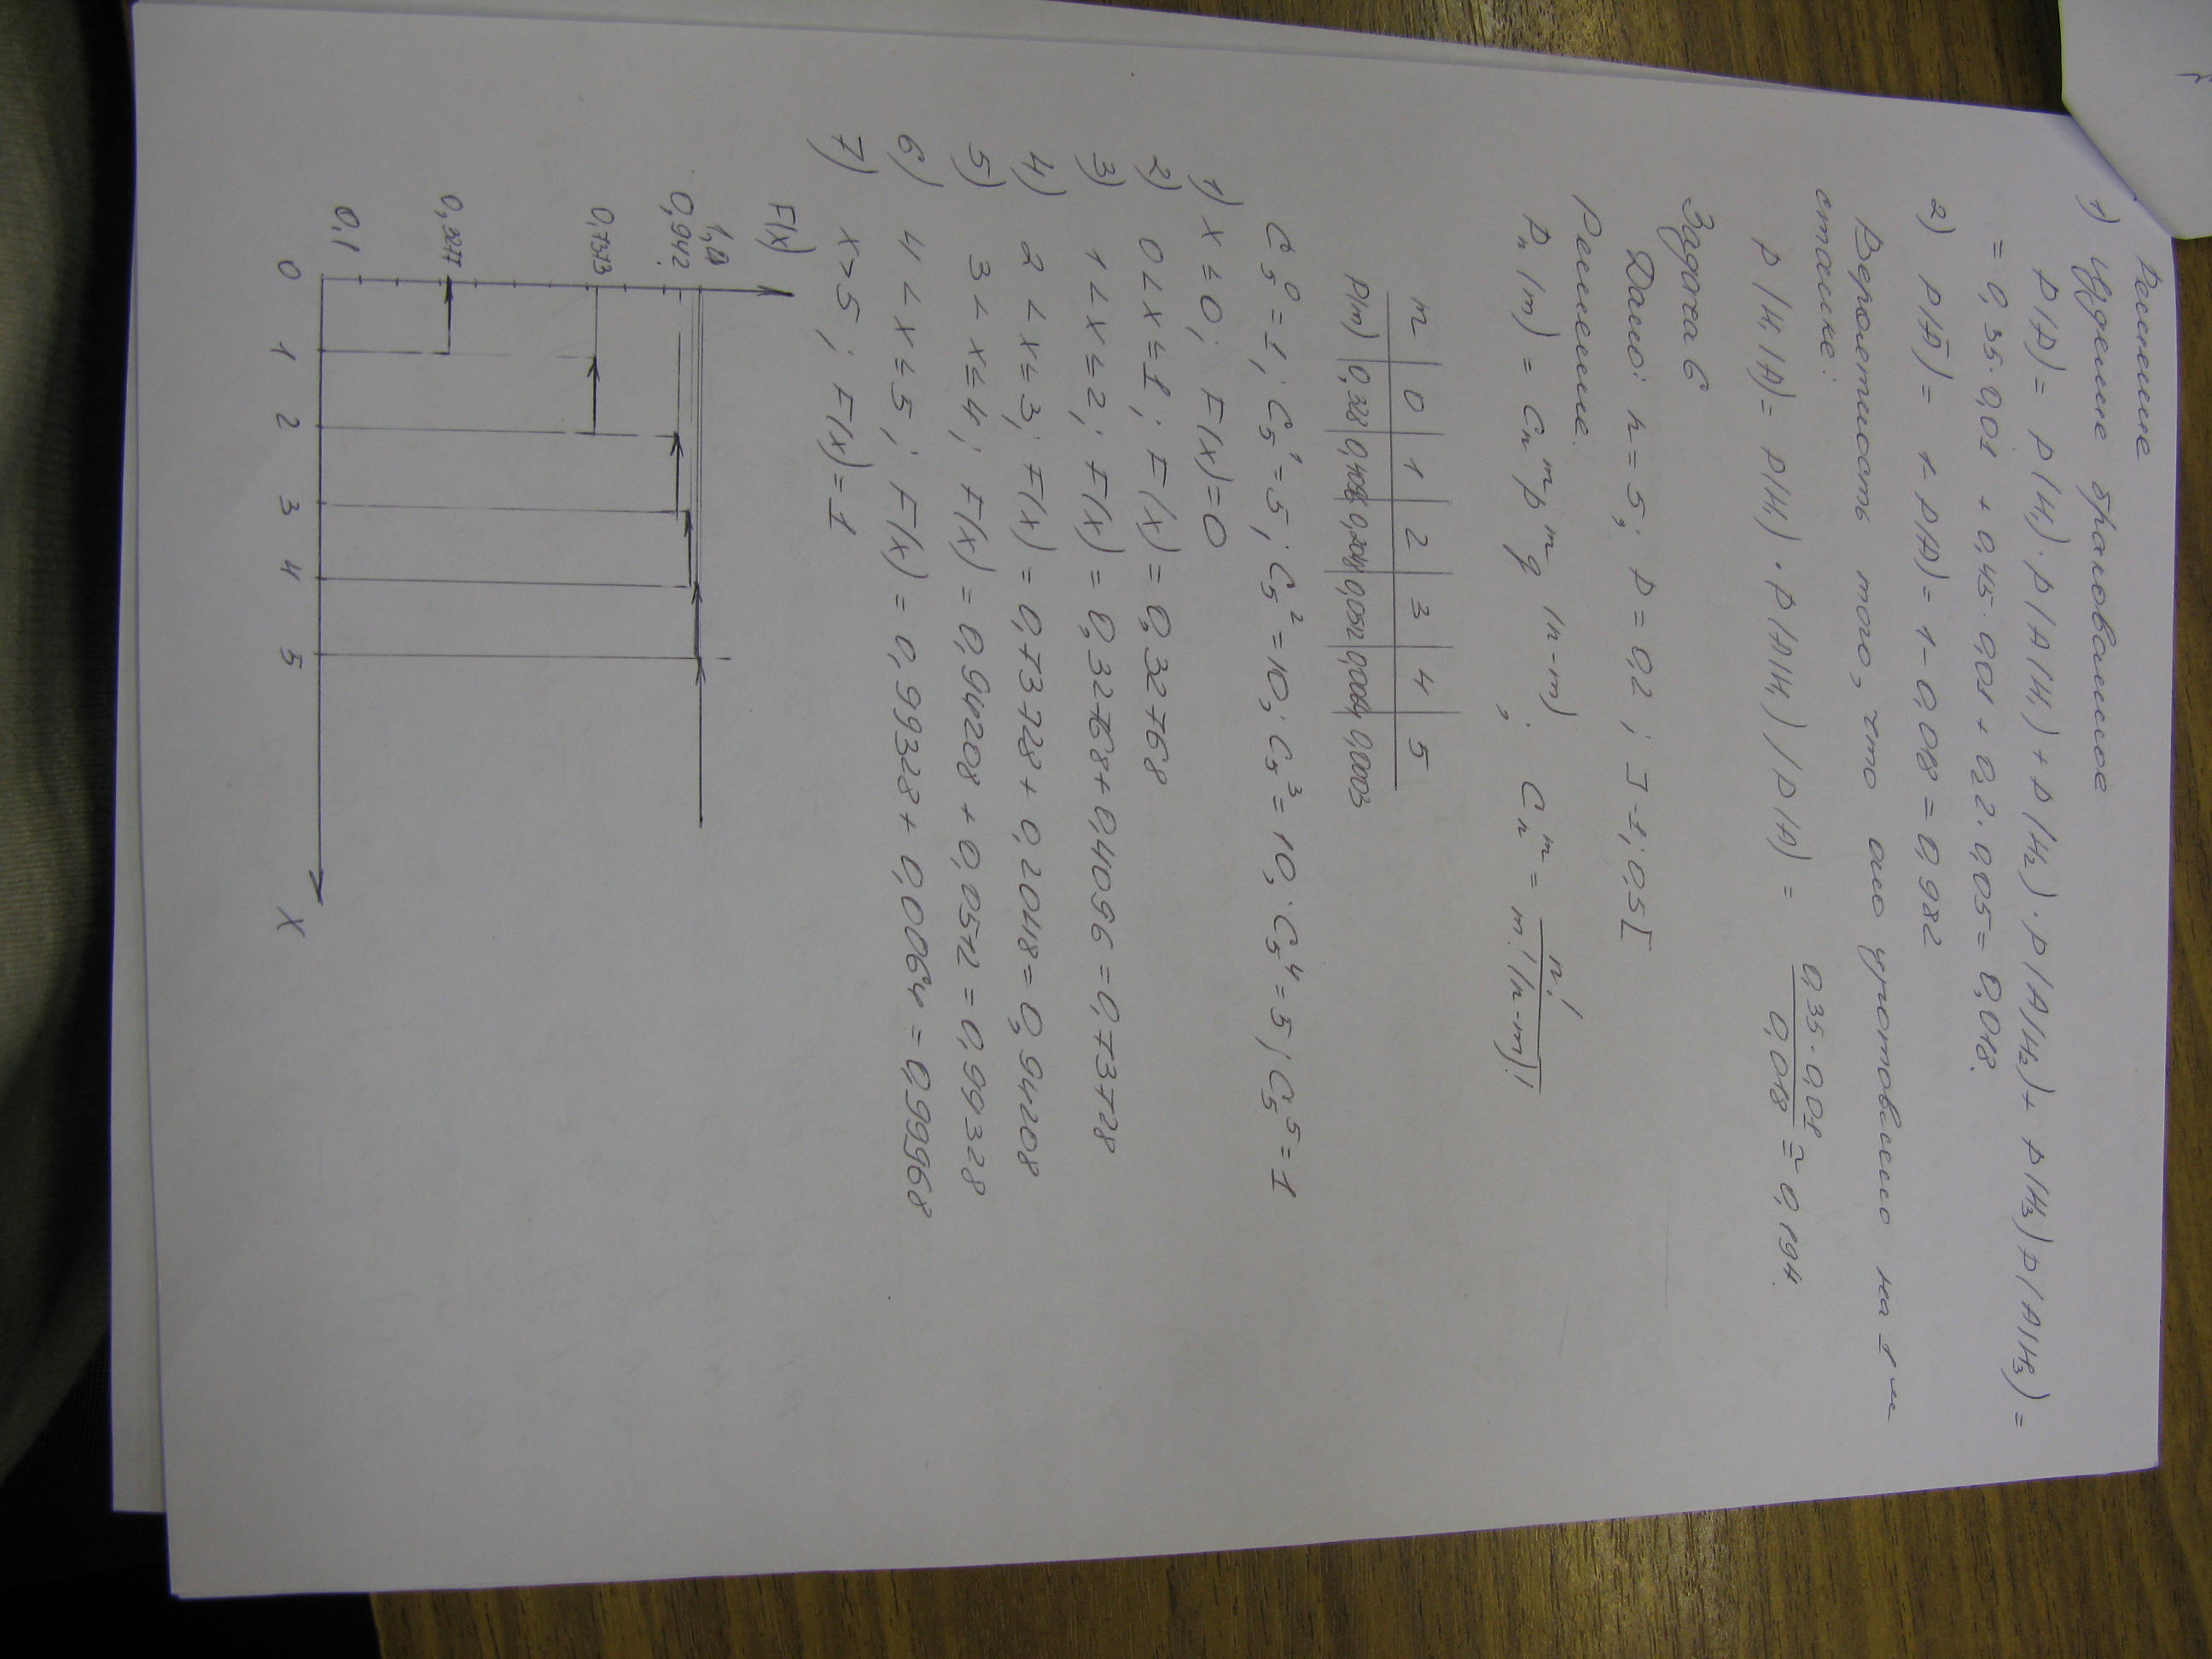 Решение
1) Изделие бракованное
P(A) = P(H₁)·P(A|H₁) + P(H₂)·P(A|H₂) + P(H₃)P(A|H₃) =
= 0,35·0,01 + 0,45·0,01 + 0,2·0,05 = 0,018.
2) P(Ā) = 1-P(A) = 1-0,018 = 0,982
Вероятность того, что оно изготовлено на 1-м
станке:
P(H₁|A) = P(H₁)·P(A|H₁)/P(A) = 0,35·0,01/0,018 ≅ 0,194.
Задача 6
Дано: n = 5; P = 0,2; ]-1; 0,5[
Решение.
Pₙ(m) = Cₙᵐ pᵐ q⁽ⁿ⁻ᵐ⁾; Cₙᵐ = n!/m!(n-m)!
m | 0 | 1 | 2 | 3 | 4 | 5
P(m) | 0,328 | 0,4096 | 0,2048 | 0,0512 | 0,0064 | 0,0003
C₅⁰ = 1; C₅¹ = 5; C₅² = 10; C₅³ = 10; C₅⁴ = 5; C₅⁵ = 1
1) x ≤ 0; F(x) = 0
2) 0 < x ≤ 1; F(x) = 0,32768
3) 1 < x ≤ 2; F(x) = 0,32768 + 0,41096 = 0,73728
4) 2 < x ≤ 3; F(x) = 0,73728 + 0,2048 = 0,94208
5) 3 < x ≤ 4; F(x) = 0,94208 + 0,0512 = 0,99328
6) 4 < x ≤ 5; F(x) = 0,99328 + 0,0064 = 0,99968
7) x > 5; F(x) = 1
F(x)
1,0
0,942
0,7373
0,3277
0,1
0 1 2 3 4 5 X